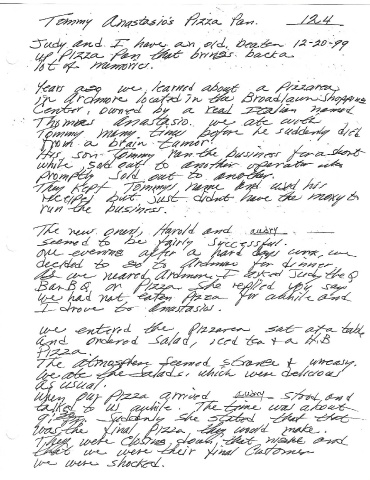 Tommy Anastasio's Pizza Pan. 124
Judy and I have an old, beaten 12-20-99
up, Pizza Pan that brings back a
lot of memories.
Years ago we learned about a Pizzarea
in Ardmore located in the Broadlawn Shopping
Center, owned by a real Italian named
Thomas Anastasio. We ate with
Tommy many times before he suddenly died
from a brain tumor.
His son Tommy ran the business for a short
while, sold out to another operator who
promptly sold out to another.
They kept Tommy's name and used his
recipes but just didn't have the money to
run the business.
The new ones, Harold and Audry
seemed to be fairly successful.
One evening after a hard days work, we
decided to go to Ardmore for dinner.
As we neared Ardmore I asked Judy the Q
Bar B Q, or Pizza. She replied you say
we had not eaten Pizza for awhile and
I drove to Anastasios.
We entered the Pizzarea sat at a table
and ordered salad, iced tea & a H.B
Pizza.
The atmosphere seemed strange & uneasy.
We ate the salads, which were delicious
as usual.
When our Pizza arrived Audry stood and
talked to us awhile. The time was about
9:PM. Suddenly she stated that that
was the final Pizza, they would make.
They were closing down, that night and
that we were their final customer
we were shocked.